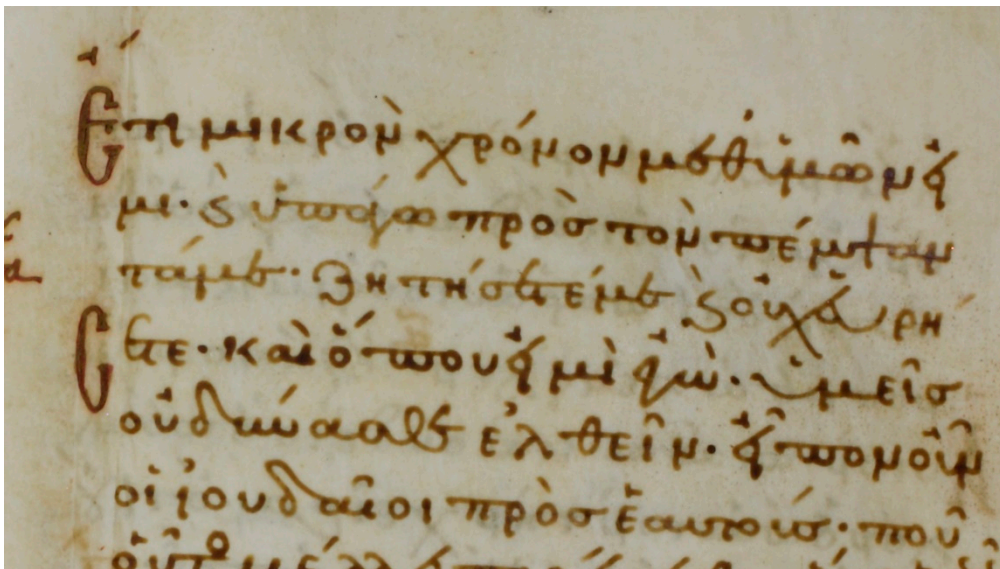 Ἔτι μικρὸν χρόνον μεθ' ὑμῶν εἰ
μι· ϗ ὑπάγω πρὸς τὸν πέμψαν
τά με· ζητήσετέ με ϗ οὐχ εὑρή
σετε· καὶ ὅπου εἰμὶ ἐγὼ· ὑμεῖς
οὐ δύνασθε ἐλθεῖν· εἶπον οὖν
οἱ ἰουδαῖοι πρὸς ἑαυτούς· ποῦ
οὗτος μέλλει